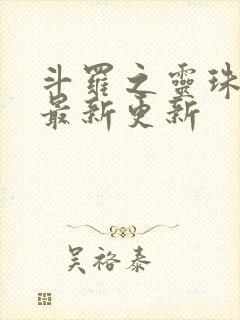 斗羅之靈珠
最新更新
吴裕泰